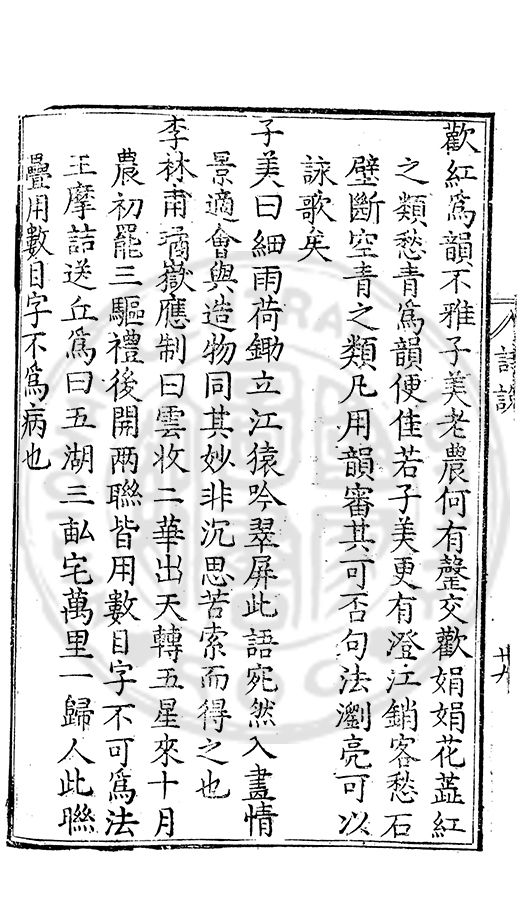 歡紅爲韻不雅子美老農何有罄交歡娟娟花蘂紅
之類愁青爲韻便佳若子美更有澄江銷客愁石
壁斷空青之類凡用韻審其可否句法瀏亮可以
詠歌矣
子美曰細雨荷鋤立江猿吟翠屏此語宛然入畫情
景適會與造物同其妙非沉思苦索而得之也
李林甫𤩽嶽應制曰雲收二華出天轉五星來十月
農初罷三驅禮後開兩聯皆用數目字不可爲法
王摩詰送丘爲曰五湖三畝宅萬里一歸人此聯
疊用數目字不爲病也
詩說
廿九